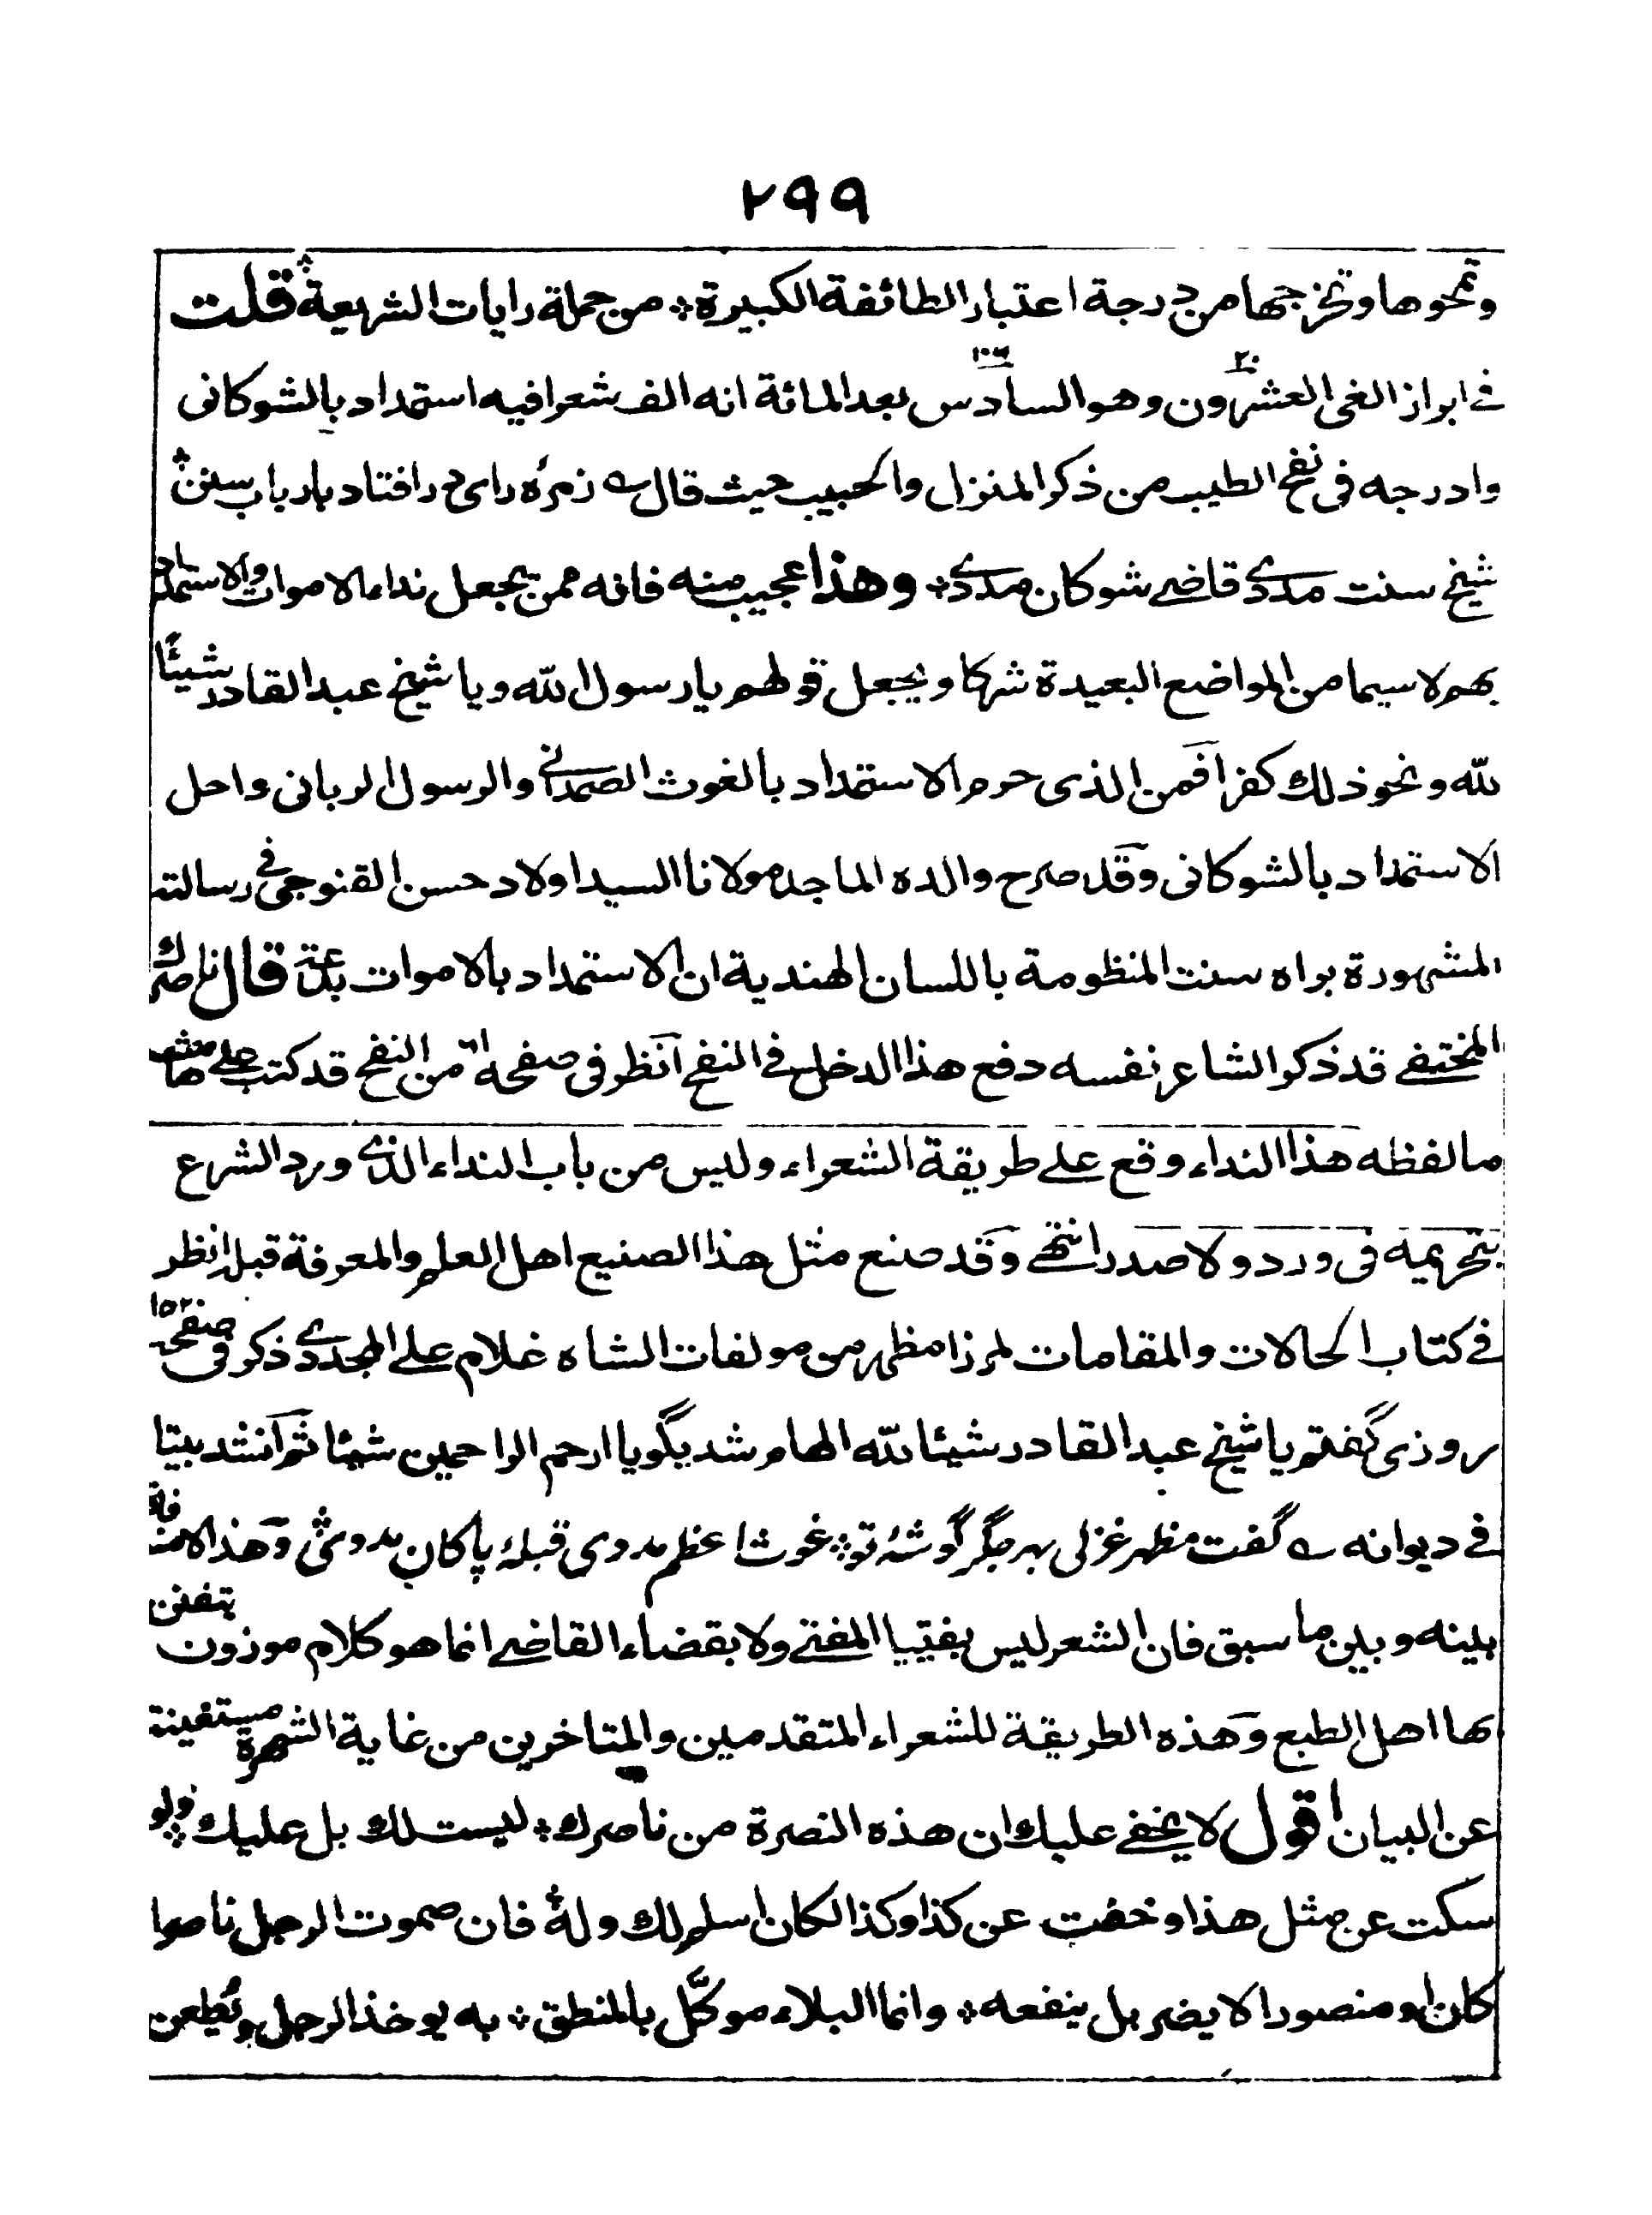 ٢٩٩
وتمحوها وتخرجها من درجة اعتبار الطائفة الكبيرة ؞ من جملة رايات الشريعة ؞ قلت
في ابراز الغى العشرون ٢٠ وهو السادس بعد المائة ١٠٦ انه الف شعرا فيه استمداد بالشوكانى
وادرجه فى نفح الطيب من ذكر المنزل والحبيب حيث قال ؎ زمرۂ راى در افتاد بارباب سنن ؞
شيخ سنت مددى قاضى شوكان مددى ؞ وهذا عجيب منه فانه ممن يجعل نداء الاموات والاستمداد
بهم لا سيما من المواضع البعيدة شركا ويجعل قولهم يا رسول الله ويا شيخ عبد القادر شيئًا
لله ونحو ذلك كفرا فمن الذى حرم الاستمداد بالغوث الصمدانى والرسول الربانى واحل
الاستمداد بالشوكانى وقد صرح والده الماجد مولانا السيد اولاد حسن القنوجى فى رسالته
المشهورة براه سنت المنظومة باللسان الهندية ان الاستمداد بالاموات بدعة قال ناصرك
المختفى قد ذكر الشاعر نفسه دفع هذا الدخل فى النفح انظر فى صفحه من النفح قد كتب على هامشها
ما لفظه هذا النداء وقع على طريقة الشعراء وليس من باب النداء الذى ورد الشرع
بتحريمه فى ورد ولا صدر انتهى وقد صنع مثل هذا الصنيع اهل العلم والمعرفة قبل انظر
فى كتاب الحالات والمقامات لمرزا مظهر من مولفات الشاه غلام على المجددى ذكر فى صفحه ١٥٢
روزى گفتم يا شيخ عبد القادر شيئا لله الهام شد بگو يا ارحم الراحمين شيئا ثم انشد بيتا
فى ديوانه ؎ گفت مظهر غزلى بهر جگر گوشۂ تو ؞ غوث اعظم مددى قبلۂ پاكان مددى ؞ وهذا لا منافاة
بينه وبين ما سبق فان الشعر ليس بفتيا المفتى ولا بقضاء القاضى انما هو كلام موزون يتفنن
بها اهل الطبع وهذه الطريقة للشعراء المتقدمين والمتاخرين من غاية الشهرة مستغنية
عن البيان اقول لا يخفى عليك ان هذه النصرة من ناصرك ؞ ليست لك بل عليك ؞ ولو
سكت عن مثل هذا وخفت عن كذا وكذا لكان اسلم لك وله ؞ فان صموت الرجل ناصرا
كان او منصورا لا يضر بل ينفعه ؞ وانما البلاء موكّل بالمنطق ؞ به يوخذ الرجل ويُطعن